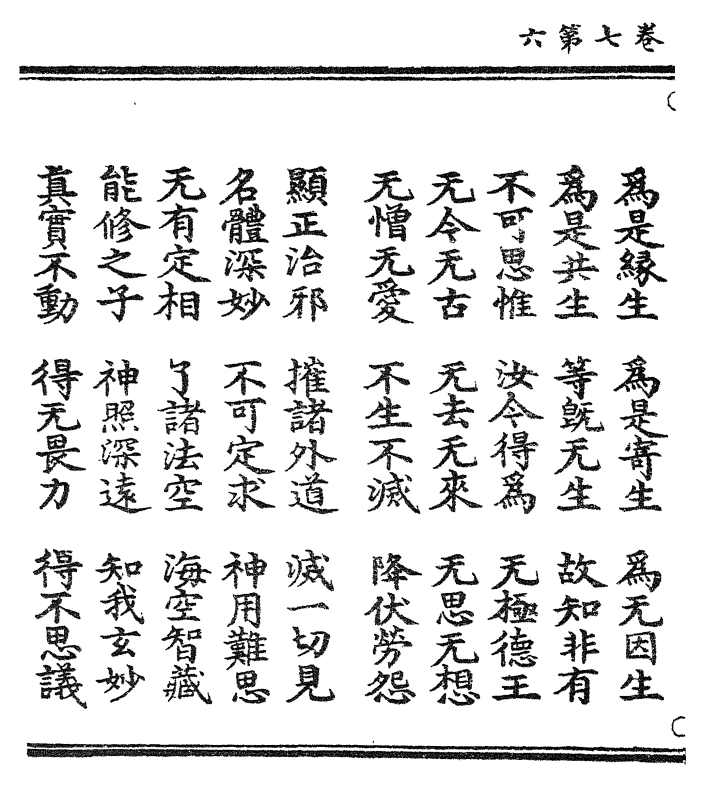 卷七第六
為是緣生 為是寄生 為无因生
為是共生 等旣无生 故知非有
不可思惟 汝今得為 无極德王
无今无古 无去无來 无思无想
无憎无愛 不生不滅 降伏勞怨
顯正治邪 摧諸外道 滅一切見
名體深妙 不可定求 神用難思
无有定相 了諸法空 海空智藏
能修之子 神照深遠 知我玄妙
真實不動 得无畏力 得不思議